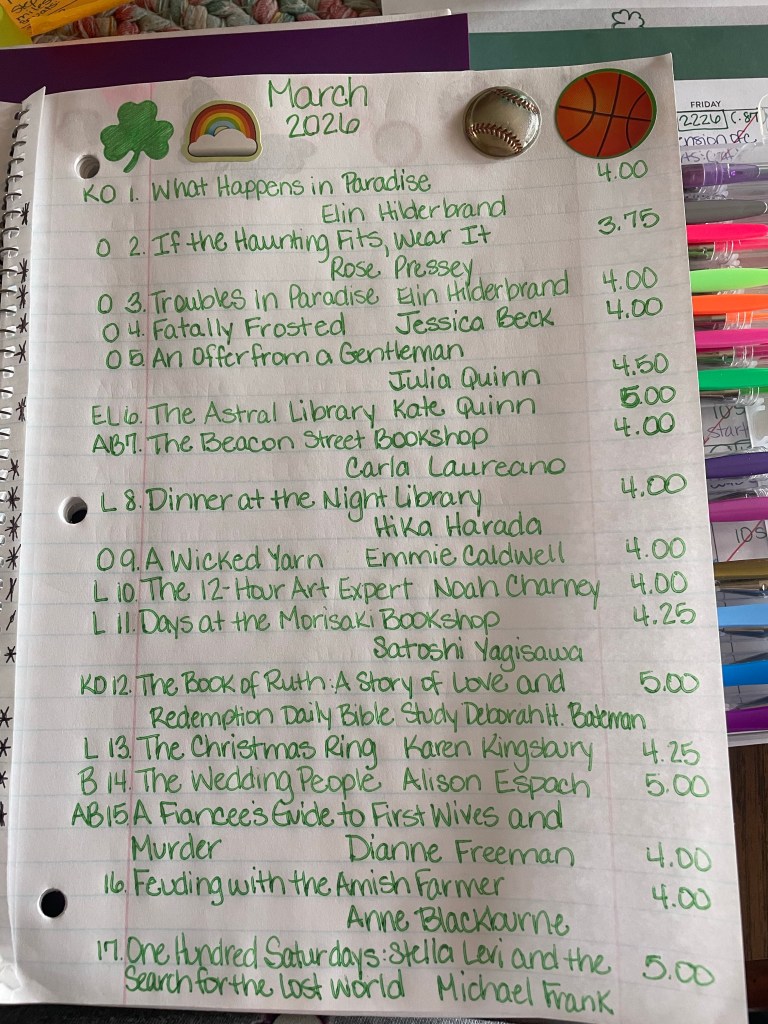 March
2026
KO 1. What Happens in Paradise 4.00
Elin Hilderbrand
O 2. If the Haunting Fits, Wear It 3.75
Rose Pressey
O 3. Troubles in Paradise Elin Hilderbrand 4.00
O 4. Fatally Frosted Jessica Beck 4.00
O 5. An Offer from a Gentleman
Julia Quinn 4.50
EL 6. The Astral Library Kate Quinn 5.00
AB 7. The Beacon Street Bookshop 4.00
Carla Laureano
L 8. Dinner at the Night Library 4.00
Hika Harada
O 9. A Wicked Yarn Emmie Caldwell 4.00
L 10. The 12-Hour Art Expert Noah Charney 4.00
L 11. Days at the Morisaki Bookshop 4.25
Satoshi Yagisawa
KO 12. The Book of Ruth: A Story of Love and 5.00
Redemption Daily Bible Study Deborah H. Bateman
L 13. The Christmas Ring Karen Kingsbury 4.25
B 14. The Wedding People Alison Espach 5.00
AB 15. A Fiancee's Guide to First Wives and
Murder Dianne Freeman 4.00
16. Feuding with the Amish Farmer 4.00
Anne Blackburne
17. One Hundred Saturdays: Stella Levi and the 5.00
Search for the Lost World Michael Frank
FRIDAY